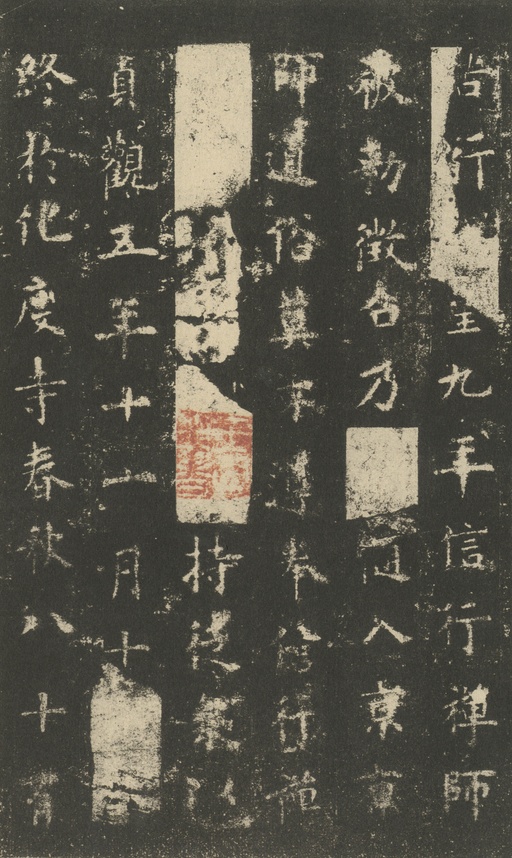 尚行九年信行禪師
被勑徵召乃入京京
師道俗莫不遵奉信行禪
持徒衆以
貞觀五年十一月十
終於化度寺春秋八十有